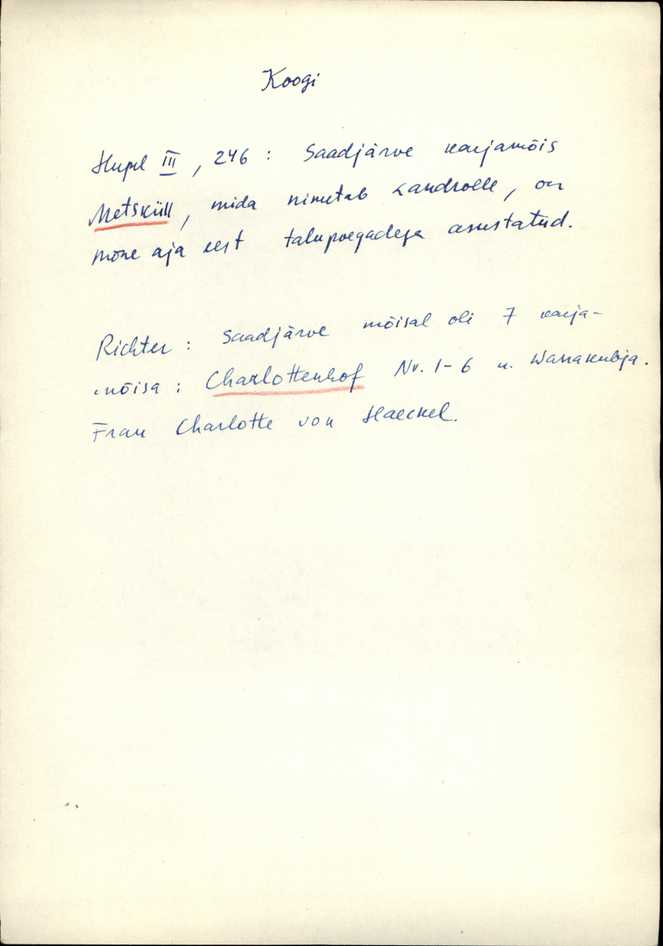 Koogi
Hupel III, 246: Saadjärve karjamõis
Metsküll, mida nimetab Landrolle, on
mõne aja eest talupoegadega asustatud.
Richter: Saadjärve mõisal oli 7 karja-
mõisa: Charlottenhof Nr. 1-6 u. Warrakubja.
Frau Charlotte von Haeckel.